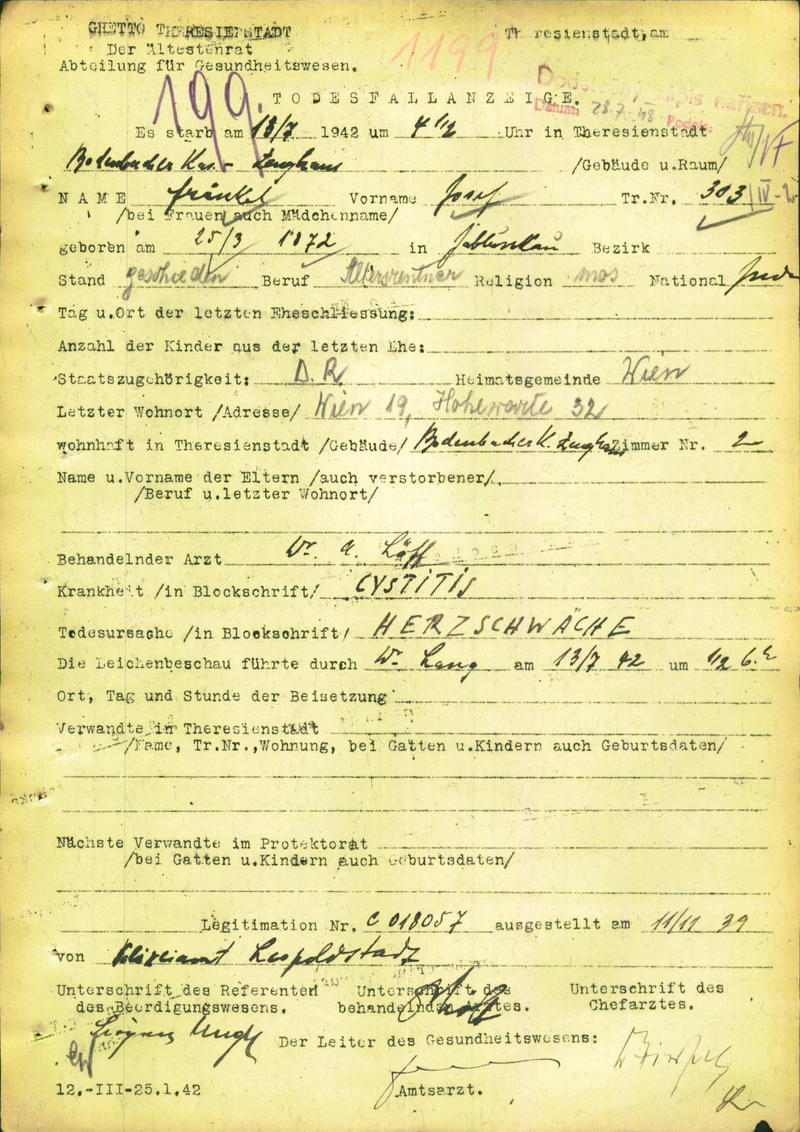 GHETTO THERESIENSTADT Theresienstadt, am
Der Ältestenrat
Abteilung für Gesundheitswesen.
1199
199.
TODESFALLANZEIGE.
Datum 28.7.48
Es starb am 13/7 1942 um 4 1/2 Uhr in Theresienstadt
Bodenbacher Kas.- Zeughaus /Gebäude u.Raum/
NAME Fränkel Vorname Josef Tr.Nr. 303/IV-2
/bei Frauen auch Mädchenname/
geboren am 25/3 1872 in Jablunkau Bezirk
Stand geschieden Beruf Altersrentner Religion mos National Jude
Tag u.Ort der letzten Eheschliessung:
Anzahl der Kinder aus der letzten Ehe:
Staatszugehörigkeit: D.R. Heimatsgemeinde Wien
Letzter Wohnort /Adresse/ Wien 19, Hohewarte 32
wohnhaft in Theresienstadt /Gebäude/ Bodenbacher K. Zeughaus Zimmer Nr. 2
Name u.Vorname der Eltern /auch verstorbener/
/Beruf u.letzter Wohnort/
Behandelnder Arzt Dr. A. Löff
Krankheit /in Blockschrift/ CYSTITIS
Todesursache /in Blockschrift/ HERZSCHWÄCHE
Die Leichenbeschau führte durch Dr. Lang am 13/7 42 um 1/2 6 h
Ort, Tag und Stunde der Beisetzung
Verwandte in Theresienstadt
/Name, Tr.Nr.,Wohnung, bei Gatten u.Kindern auch Geburtsdaten/
Nächste Verwandte im Protektorat
/bei Gatten u.Kindern auch Geburtsdaten/
Legitimation Nr. C 018057 ausgestellt am 11/11 39
von Polizeiamt Leopoldstadt
Unterschrift des Referenten Unterschrift des Unterschrift des
des Beerdigungswesens. behandelnden Arztes. Chefarztes.
Der Leiter des Gesundheitswesens:
12.-III-25.1.42 Amtsarzt.